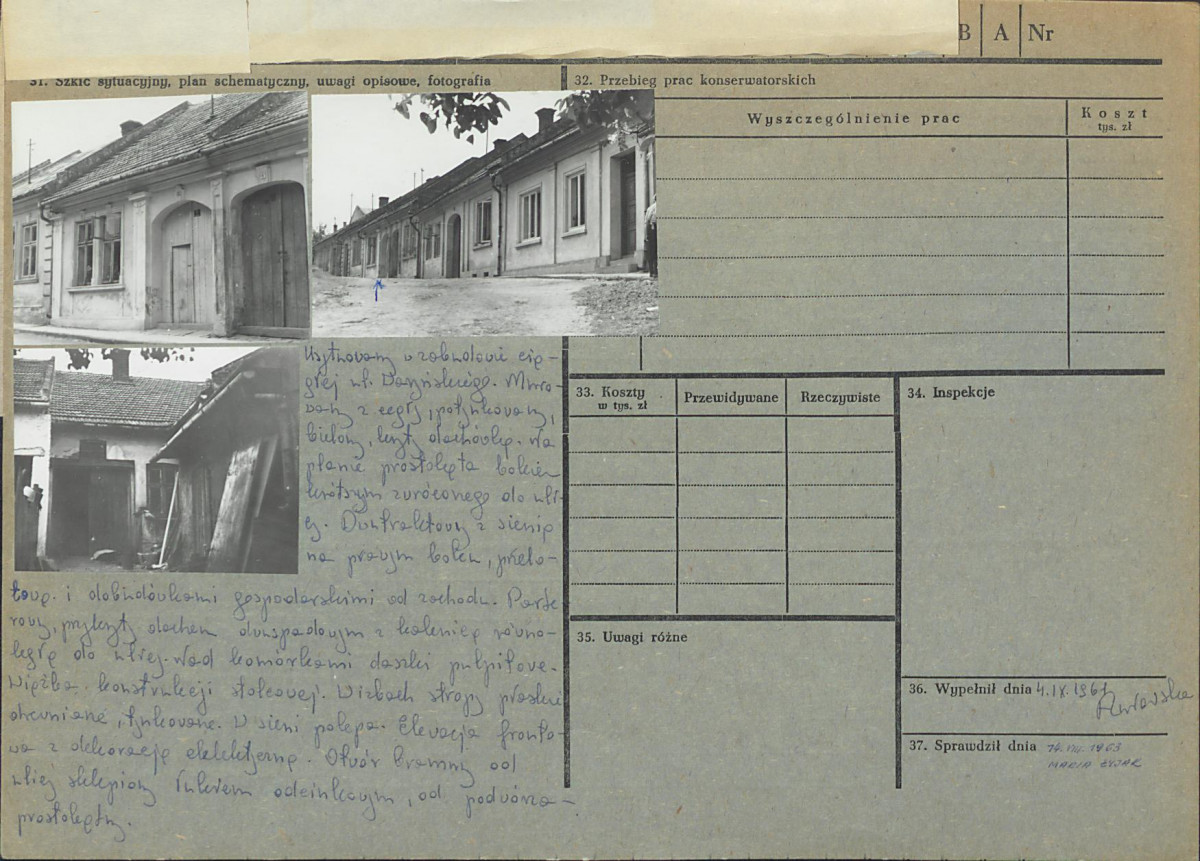 B A Nr
31. Szkic sytuacyjny, plan schematyczny, uwagi opisowe, fotografia
32. Przebieg prac konserwatorskich
Wyszczególnienie prac
Koszt
tys. zł
Usytuowany w zabudowie cią-
głej ul. Daszyńskiego. Muro-
wany z cegły, potynkowany,
bielony, kryty dachówką. Na
planie prostokąta bokiem
krótszym zwróconego do uli-
cy. Dwutraktowy z sienią
na prawym boku, przelo-
tową. i dobudówkami gospodarskimi od zachodu. Parte
rowy, przykryty dachem dwuspadowym z kalenicą równo-
ległą do ulicy. Nad komórkami daszki pulpitowe.
Więźba konstrukcji stolcowej. W izbach stropy płaskie
drewniane, tynkowane. W sieni polepa. Elewacja fronto-
wa z dekoracją eklektyczną. Otwór bramny od
ulicy sklepiony łukiem odcinkowym, od podwórza –
prostokątny.
33. Koszty
w tys. zł
Przewidywane
Rzeczywiste
34. Inspekcje
35. Uwagi różne
36. Wypełnił dnia 4.IX.1961
37. Sprawdził dnia 14.VIII.1963
MARIA ŻYJAK